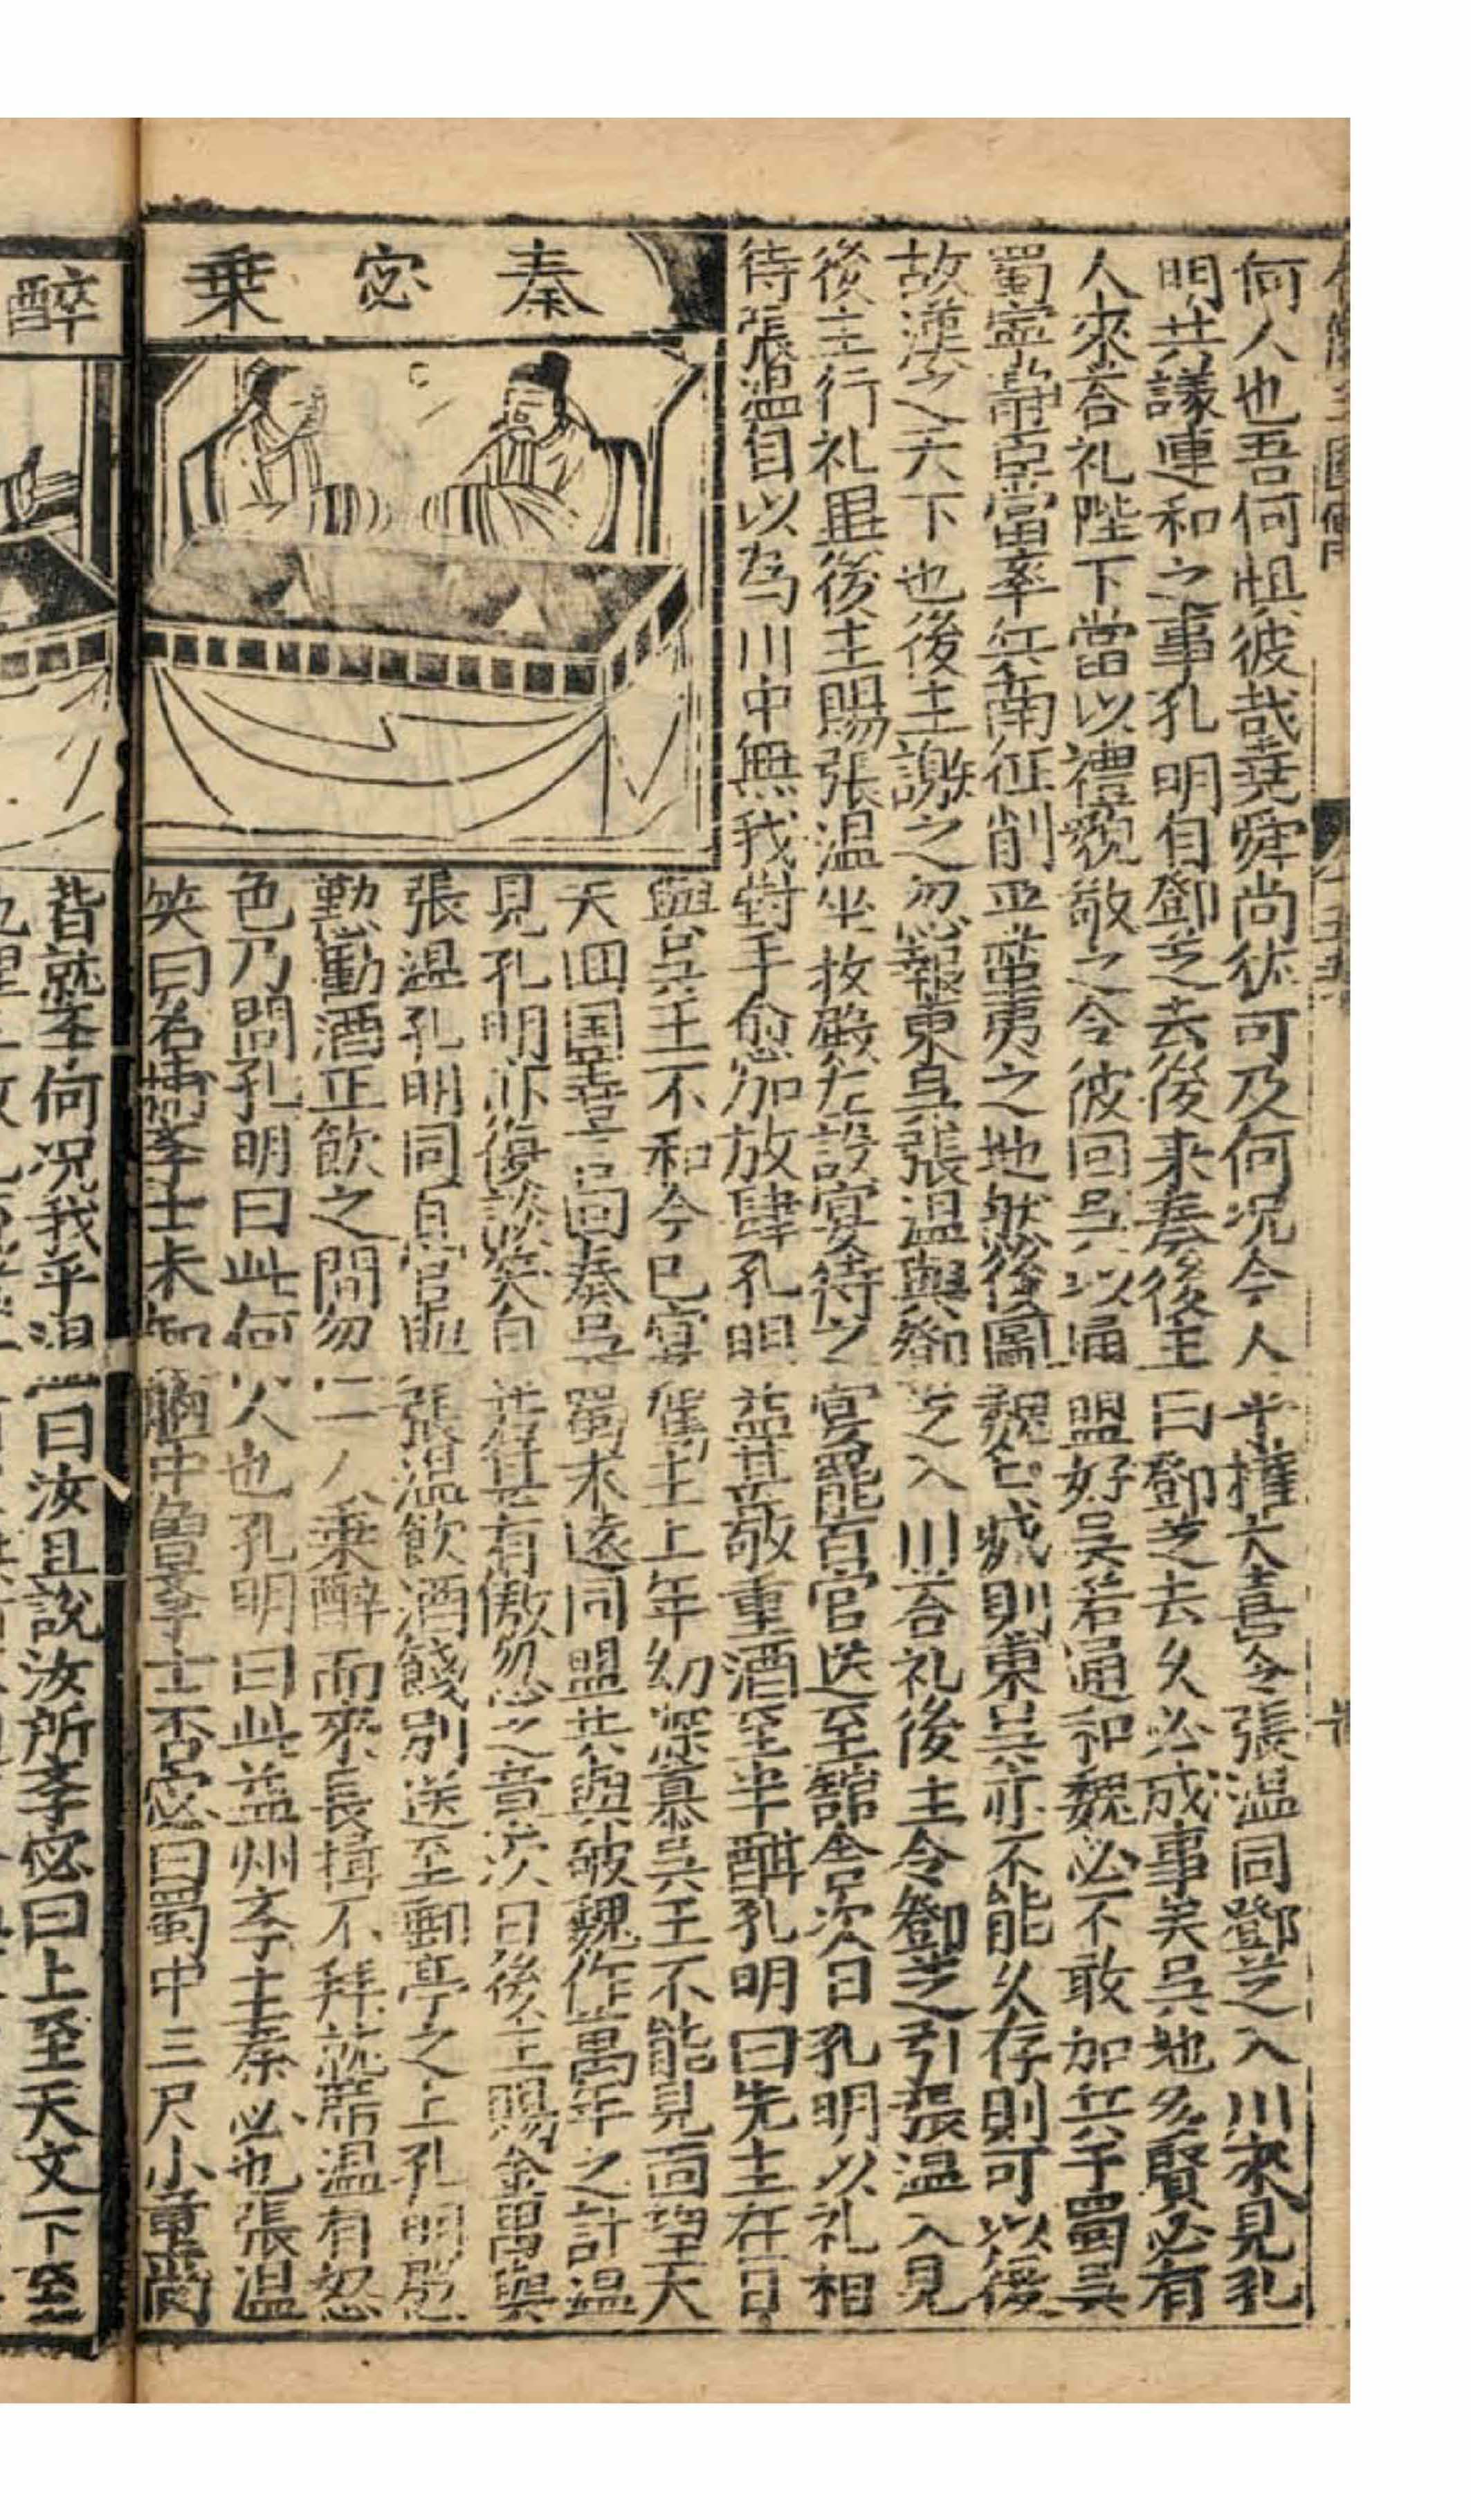 何人也吾何怛彼哉堯舜尚猶可及何况今人乎權大喜令張温同鄧芝入川來見孔
明共議連和之事孔明自鄧芝去後来奏後主曰鄧芝去久必成事美吳地多賢必有
人來荅礼陛下當以禮貌敬之令彼回吳以通盟好吳若通和魏必不敢加兵于蜀吳
蜀寧靜臣當率兵南征削平蛮夷之地然後圖魏亡滅則東吳亦不能久存則可以復
故漢之天下也後主謝之忽報東吳張温與鄧芝入川荅礼後主令鄧芝引張温入見
後主行礼畢後主賜張温坐扵殿左設宴待之宴罷百官送至舘舍次日孔明以礼相
待張温自以為川中無我對手愈加放肆孔明益甚敬重酒至半酣孔明曰先主在日
秦宓乗
與吳王不和今已宴駕主上年幼深慕吳王不能見面望天
天囬国善言回奏吳蜀永遠同盟共與破魏作萬年之計温
見孔明亦復談笑自若甚有傲忽之意次日後主賜金萬與
張温孔明同百官與張温飲酒餞別送至郵亭之上孔明慇
懃勸酒正飲之間忽一人乗醉而來長揖不拜就席温有怒
色乃問孔明曰此何人也孔明曰此益州孝士秦必也張温
笑曰名稱孝士未知胸中魯孝士否宓曰蜀中三尺小童尚
醉
皆就孝何况我乎温曰汝且說汝所孝宓曰上至天文下至